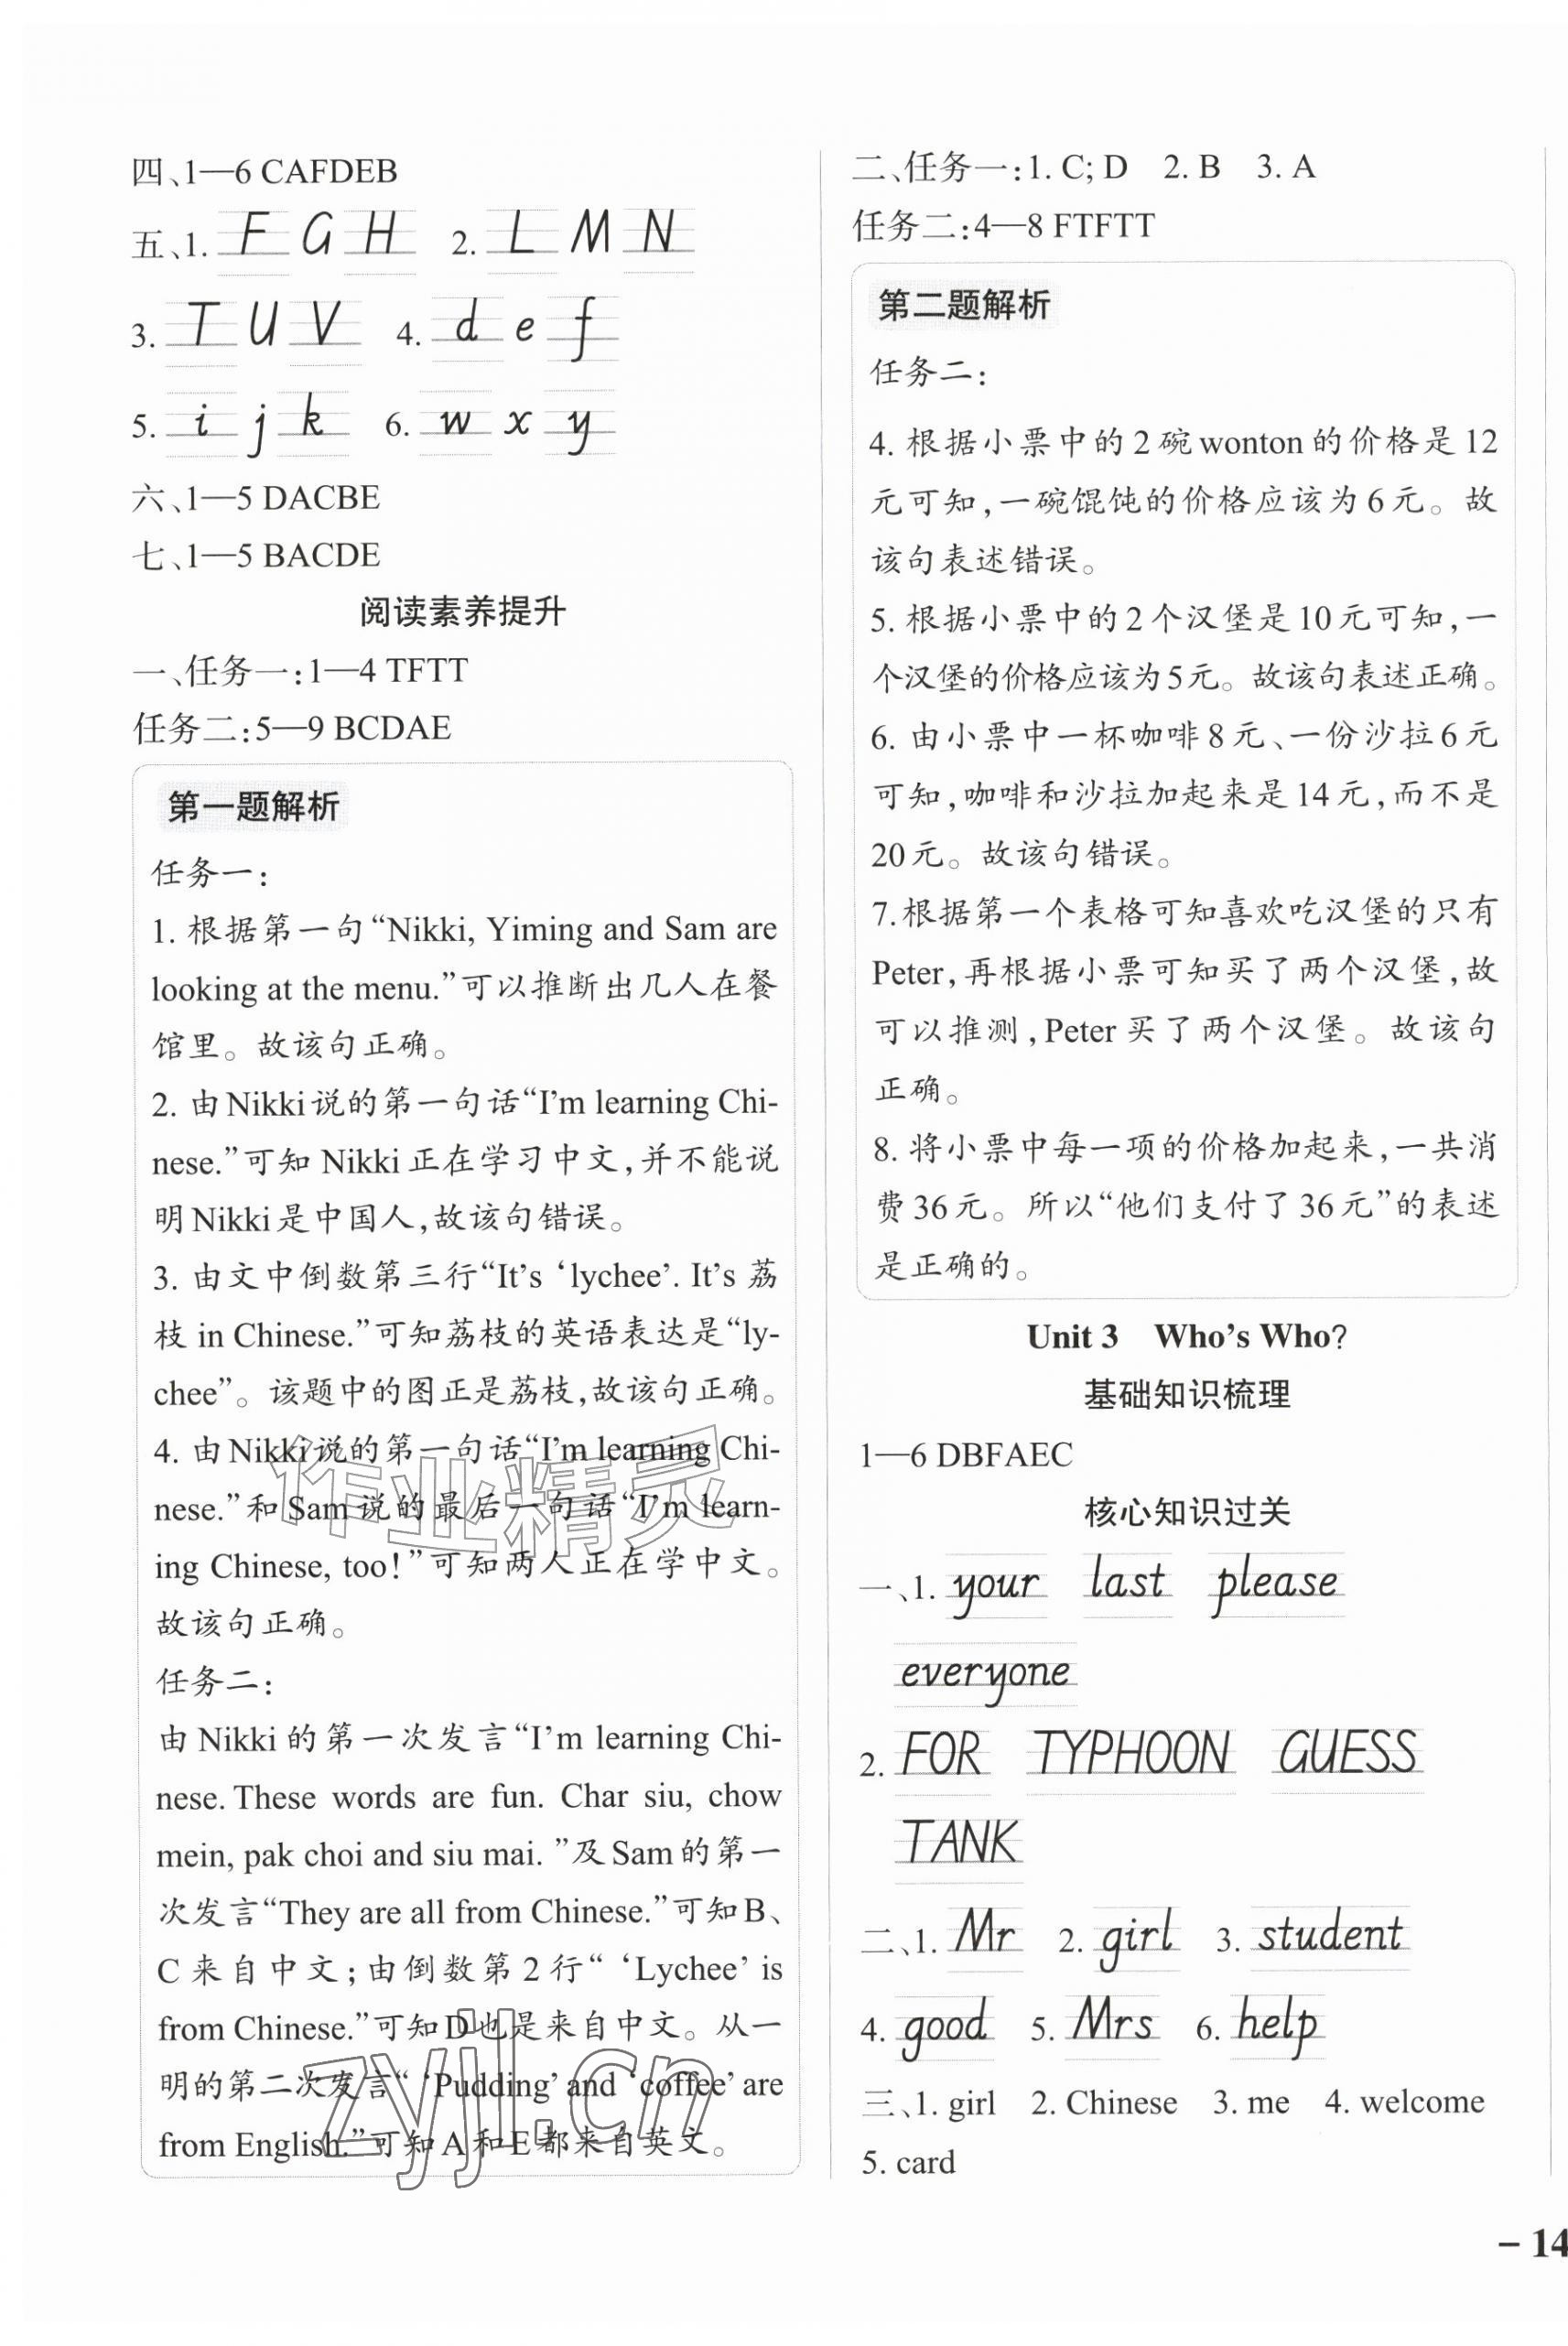 四、1—6 CAFDEB
五、1. F G H 2. L M N
3. T U V 4. d e f
5. i j k 6. w x y
六、1—5 DACBE
七、1—5 BACDE
阅读素养提升
一、任务一:1—4 TFTT
任务二:5—9 BCDAE
第一题解析
任务一:
1. 根据第一句“Nikki, Yiming and Sam are
looking at the menu.”可以推断出几人在餐
馆里。故该句正确。
2. 由Nikki说的第一句话“I’m learning Chi-
nese.”可知 Nikki正在学习中文,并不能说
明Nikki是中国人,故该句错误。
3. 由文中倒数第三行“It’s ‘lychee’. It’s 荔
枝 in Chinese.”可知荔枝的英语表达是“ly-
chee”。该题中的图正是荔枝,故该句正确。
4. 由Nikki说的第一句话“I’m learning Chi-
nese.”和Sam说的最后一句话“I’m learn-
ing Chinese, too!”可知两人正在学中文。
故该句正确。
任务二:
由 Nikki 的第一次发言“I’m learning Chi-
nese. These words are fun. Char siu, chow
mein, pak choi and siu mai. ”及Sam的第一
次发言“They are all from Chinese.”可知B、
C来自中文;由倒数第2行“ ‘Lychee’ is
from Chinese.”可知D也是来自中文。从一
明的第二次发言“ ‘Pudding’ and ‘coffee’ are
from English.”可知A和E都来自英文。
作业精灵
zyjl.cn
二、任务一:1. C; D 2. B 3. A
任务二:4—8 FTFTT
第二题解析
任务二:
4. 根据小票中的2碗wonton的价格是12
元可知,一碗馄饨的价格应该为6元。故
该句表述错误。
5. 根据小票中的2个汉堡是10元可知,一
个汉堡的价格应该为5元。故该句表述正确。
6. 由小票中一杯咖啡8元、一份沙拉6元
可知,咖啡和沙拉加起来是14元,而不是
20元。故该句错误。
7.根据第一个表格可知喜欢吃汉堡的只有
Peter,再根据小票可知买了两个汉堡,故
可以推测,Peter买了两个汉堡。故该句
正确。
8. 将小票中每一项的价格加起来,一共消
费36元。所以“他们支付了36元”的表述
是正确的。
Unit 3 Who’s Who?
基础知识梳理
1—6 DBFAEC
核心知识过关
一、1. your last please
everyone
2. FOR TYPHOON GUESS
TANK
二、1. Mr 2. girl 3. student
4. good 5. Mrs 6. help
三、1. girl 2. Chinese 3. me 4. welcome
5. card
- 14